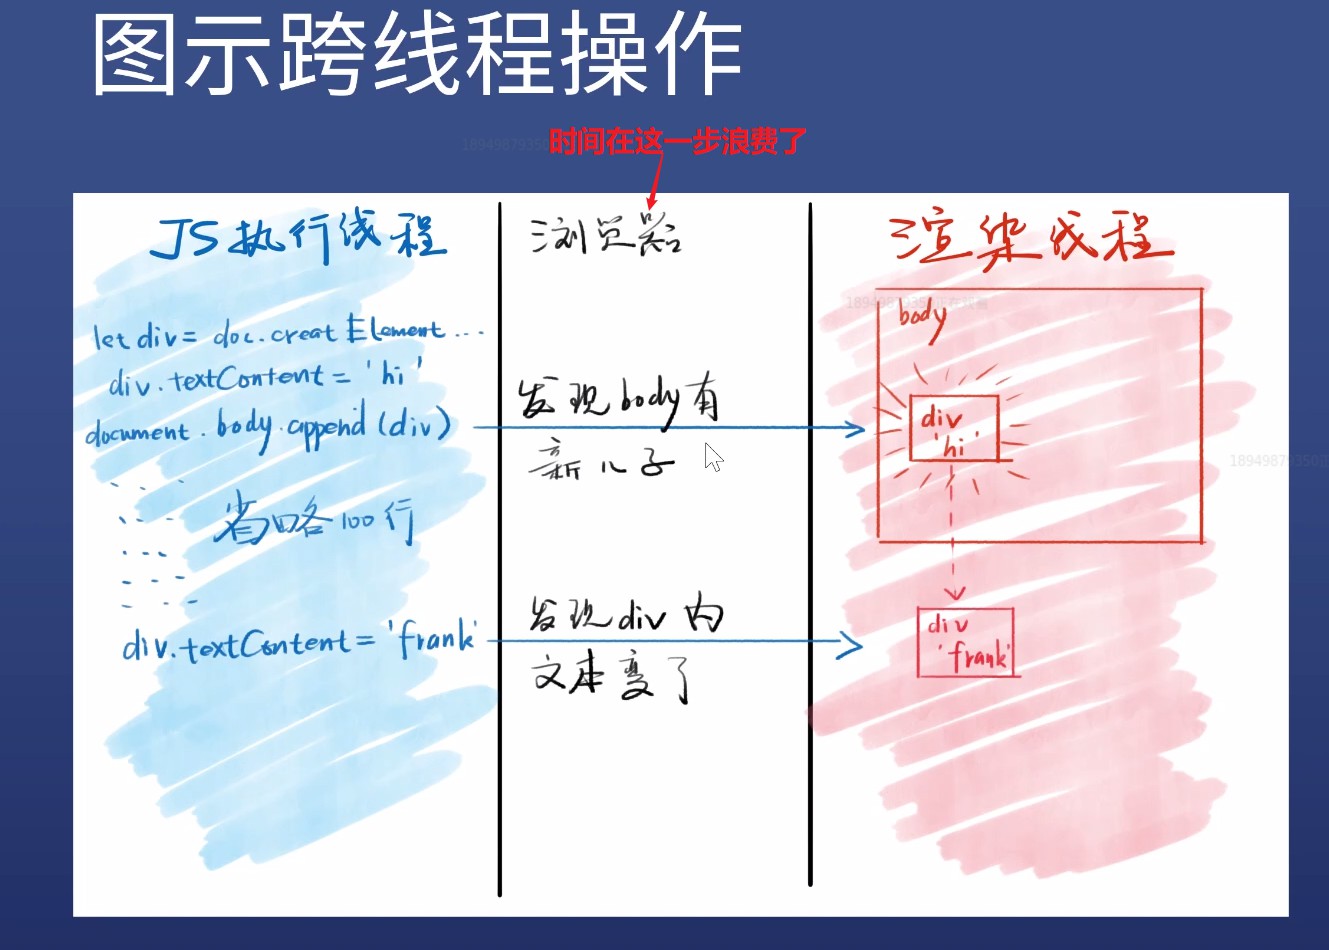 图示跨线程操作
时间在这一步浪费了
JS执行线程
浏览器
渲染线程
let div = doc.creat Element ...
div.textContent = 'hi'
document.body.append(div)
省略100行
div.textContent = 'frank'
发现body有
新儿子
发现div内
文本变了
body
div
'hi'
div
'frank'